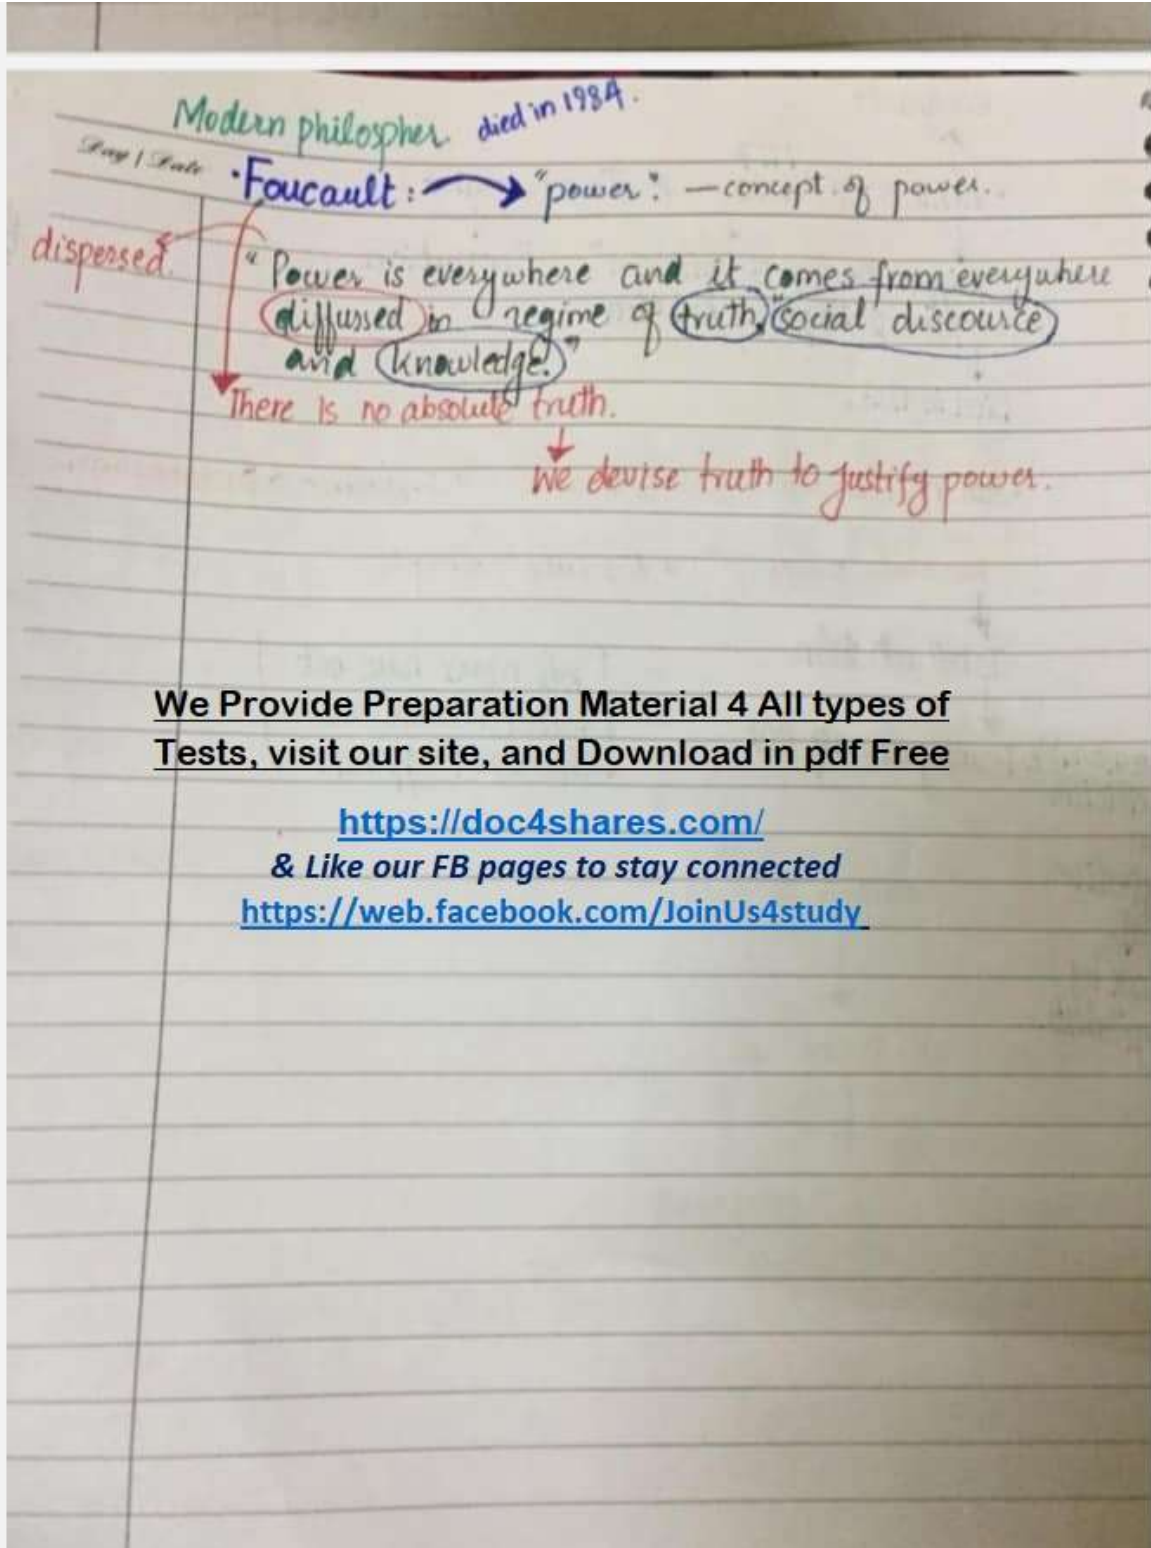 Modern philospher. died in 1984.
Day / Date
•Foucault: → "power": — concept of power.
dispersed.
"Power is everywhere and it comes from everywhere
diffussed in regime of truth, social discource
and knowledge."
There is no absolute truth.
↓
We devise truth to justify power.
We Provide Preparation Material 4 All types of
Tests, visit our site, and Download in pdf Free
https://doc4shares.com/
& Like our FB pages to stay connected
https://web.facebook.com/JoinUs4study